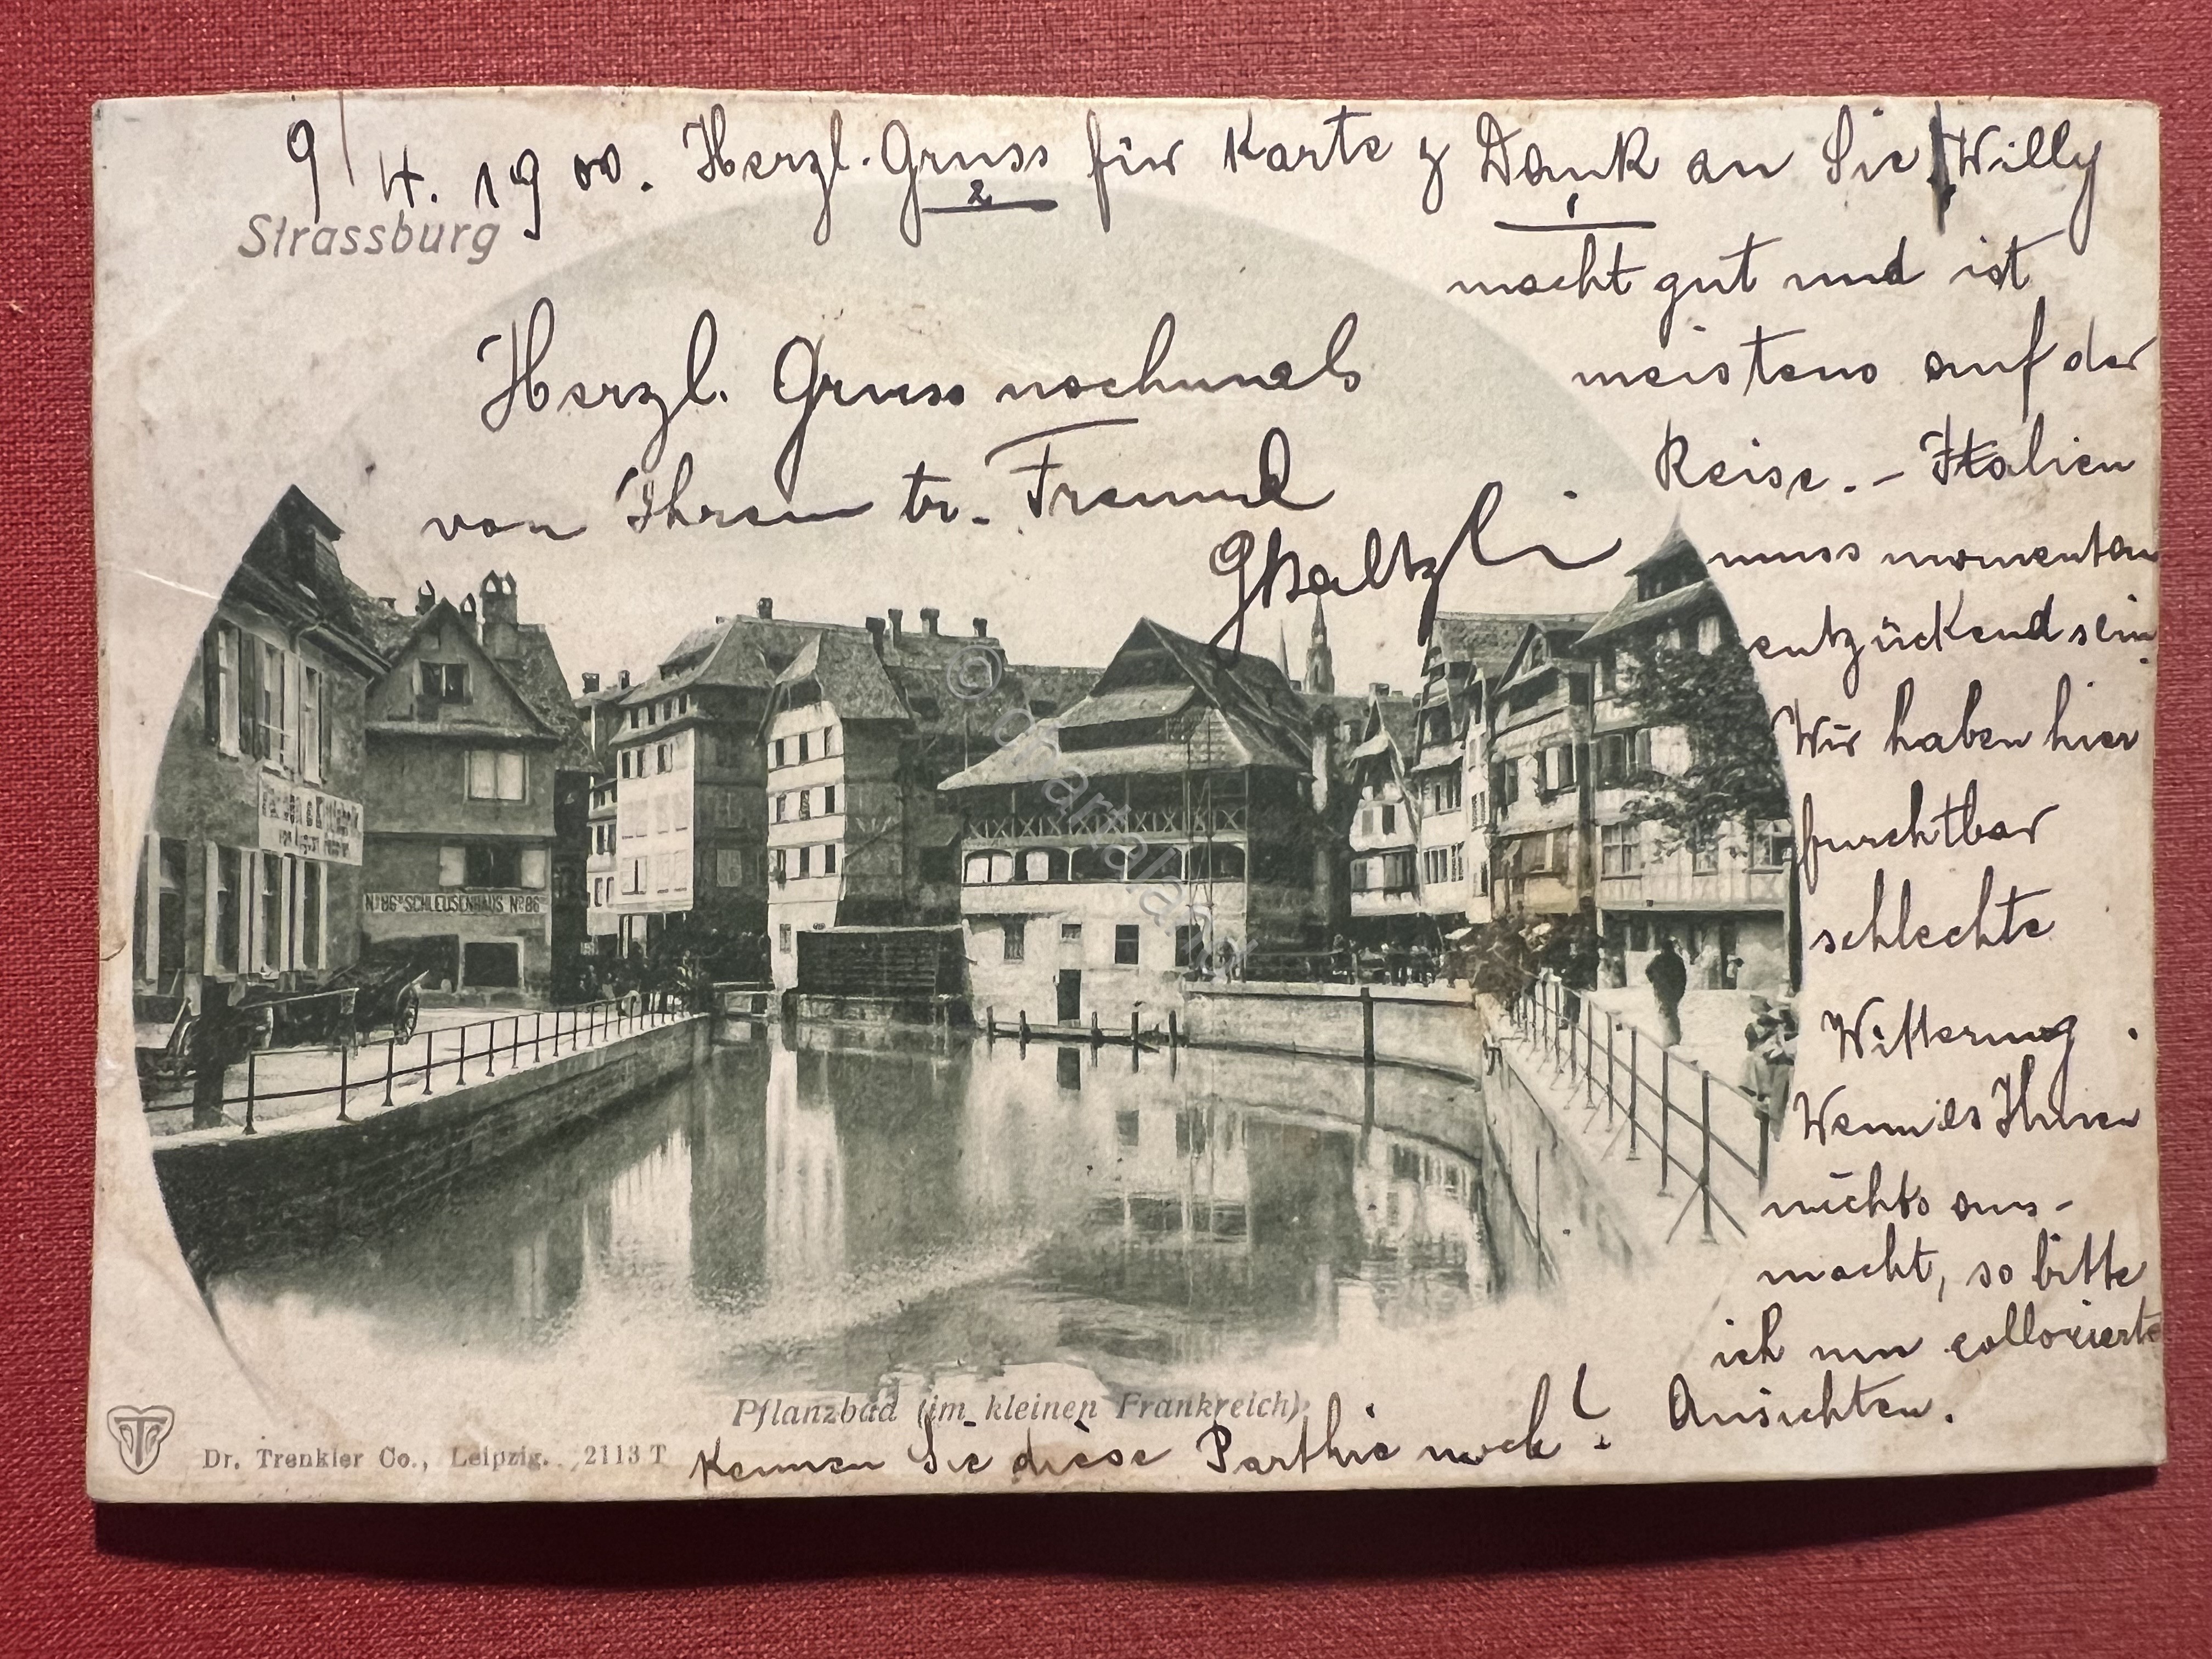 9/4. 1900. Herzl. Gruss für Karte & Dank an Sie Willy
2
1
Strassburg
macht gut und ist
meistens auf der
Reise. – Italien
muss momentan
entzückend sein.
Wir haben hier
furchtbar
schlechte
Witterung.
Wenn es Ihnen
nichts aus-
macht, so bitte
ich um collorierte
Ansichten.
Herzl. Gruss nochmals
von Ihrem tr. Freund
No 86 SCHLEUSENHAUS No 86
© cartaland
Pflanzbad (im kleinen Frankreich).
Kennen Sie diese Parthie noch?
Dr. Trenkler Co., Leipzig. 2113 T